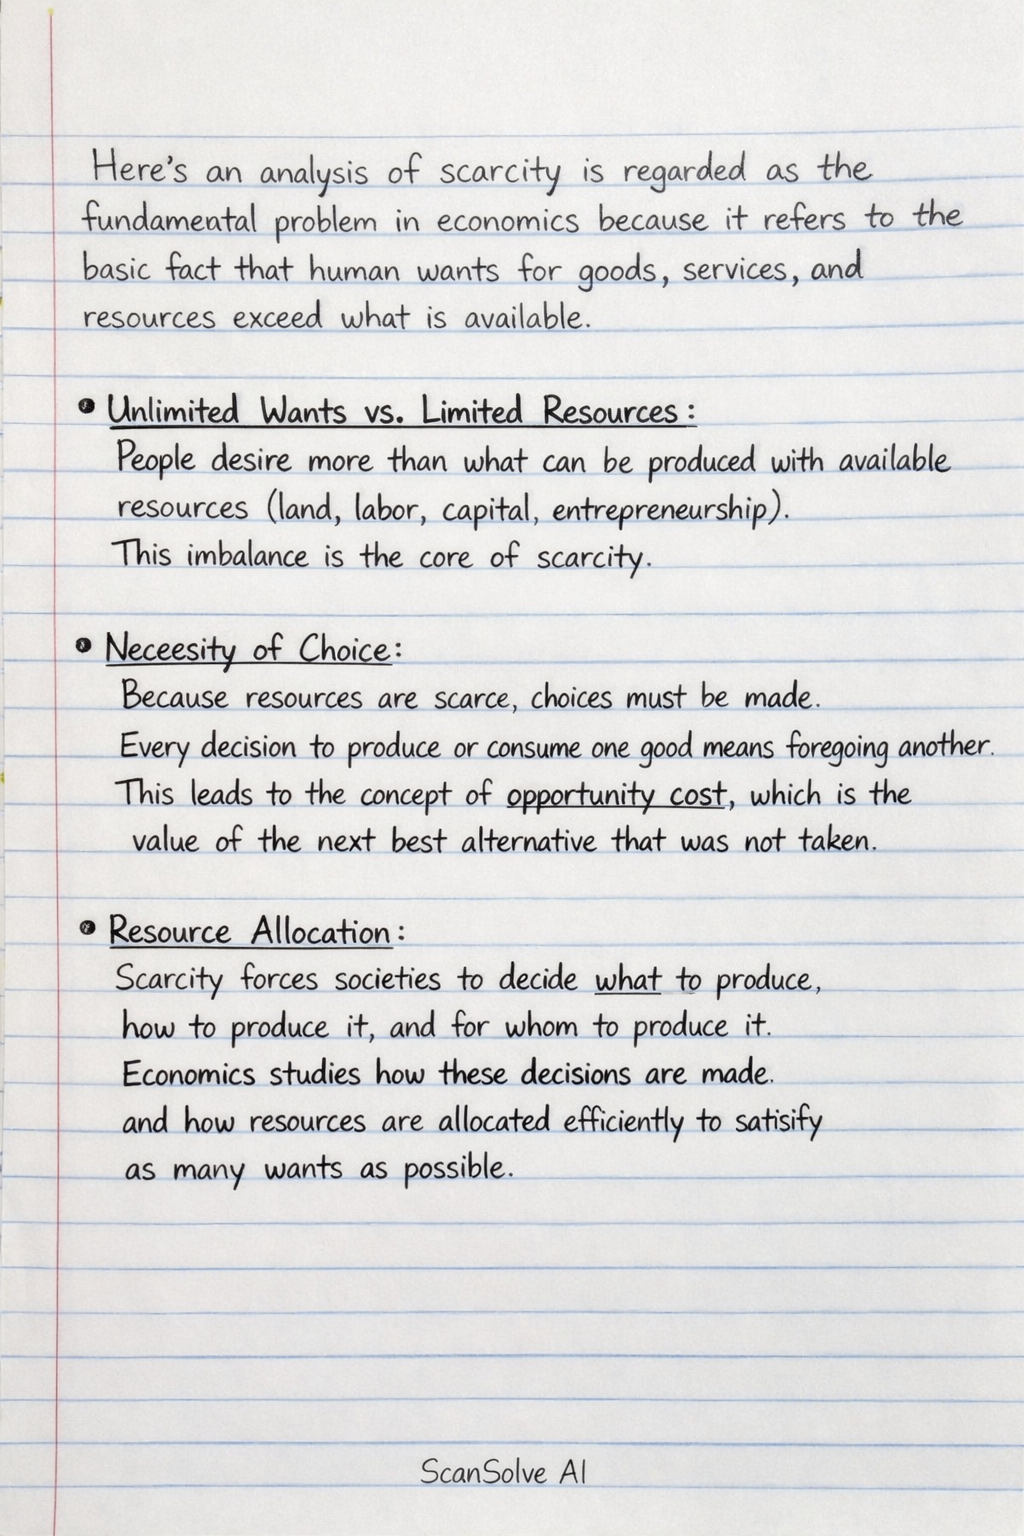 Here's an analysis of scarcity is regarded as the
fundamental problem in economics because it refers to the
basic fact that human wants for goods, services, and
resources exceed what is available.
• Unlimited Wants vs. Limited Resources:
People desire more than what can be produced with available
resources (land, labor, capital, entrepreneurship).
This imbalance is the core of scarcity.
• Neceesity of Choice:
Because resources are scarce, choices must be made.
Every decision to produce or consume one good means foregoing another.
This leads to the concept of opportunity cost, which is the
value of the next best alternative that was not taken.
• Resource Allocation:
Scarcity forces societies to decide what to produce,
how to produce it, and for whom to produce it.
Economics studies how these decisions are made.
and how resources are allocated efficiently to satisify
as many wants as possible.
ScanSolve AI